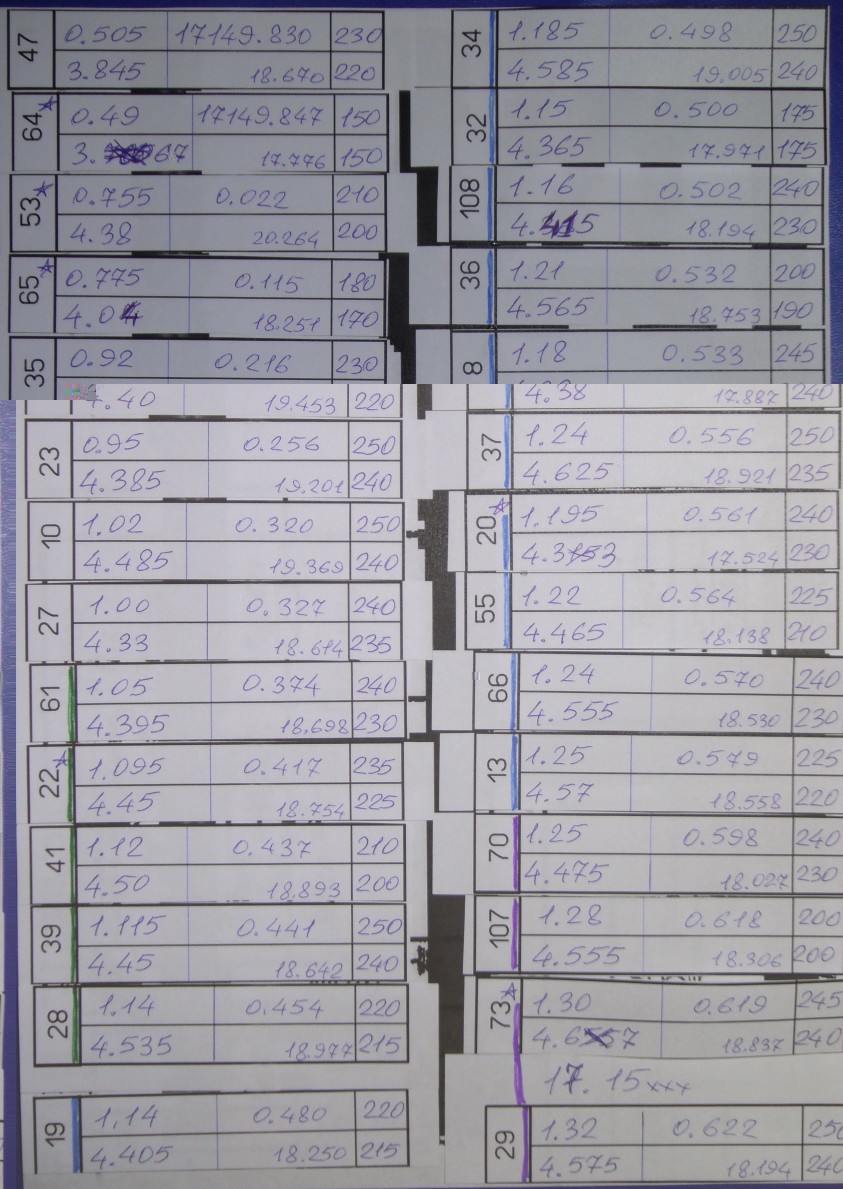 47 0.505 17149.830 230
3.845 18.670 220
64* 0.49 17149.847 150
3. 67 17.776 150
53* 0.755 0.022 210
4.38 20.264 200
65* 0.775 0.115 180
4.04 18.251 170
35 0.92 0.216 230
4.40 19.453 220
23 0.95 0.256 250
4.385 19.201 240
10 1.02 0.320 250
4.485 19.369 240
27 1.00 0.327 240
4.33 18.614 235
61 1.05 0.374 240
4.395 18.698 230
22* 1.095 0.417 235
4.45 18.754 225
41 1.12 0.437 210
4.50 18.893 200
39 1.115 0.441 250
4.45 18.642 240
28 1.14 0.454 220
4.535 18.977 215
19 1.14 0.480 220
4.405 18.250 215
34 1.185 0.498 250
4.585 19.005 240
32 1.15 0.500 175
4.365 17.971 175
108 1.16 0.502 240
4.415 18.194 230
36 1.21 0.532 200
4.565 18.753 190
8 1.18 0.533 245
4.38 17.887 240
37 1.24 0.556 250
4.625 18.921 235
20* 1.195 0.561 240
17.524 230
55 1.22 0.564 225
4.465 18.138 210
66 1.24 0.570 240
4.555 18.530 230
13 1.25 0.579 225
4.57 18.558 220
70 1.25 0.598 240
4.475 18.027 230
107 1.28 0.618 200
4.555 18.306 200
73* 1.30 0.619 245
18.837 240
17.15xxx
29 1.32 0.622 250
4.575 18.194 240